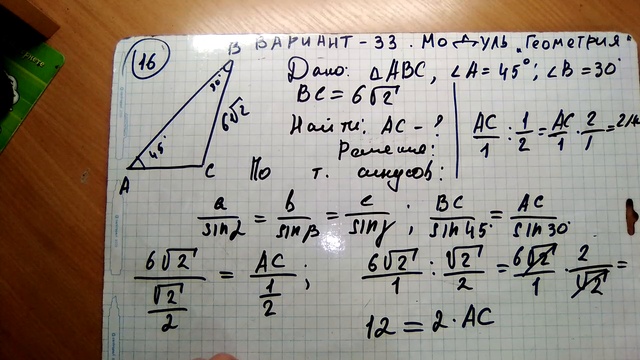 16
ВАРИАНТ-33. Модуль „Геометрия"
Дано: △ABC, ∠A=45°; ∠B=30°
BC=6√2
Найти: AC-?
Решение:
По т. синусов:
AC/1 : 1/2 = AC/1 · 2/1 = 2AC
B
30°
6√2
45°
A
C
a/sinα = b/sinβ = c/sinγ ; BC/sin45° = AC/sin30°
6√2/(√2/2) = AC/(1/2) ; 6√2/1 : √2/2 = 6√2/1 · 2/√2 =
12 = 2·AC